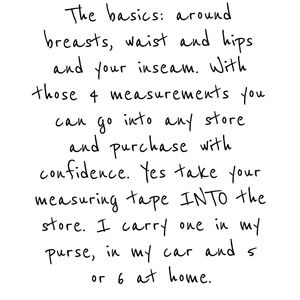 The basics: around
breasts, waist and hips
and your inseam. With
those 4 measurements you
can go into any store
and purchase with
confidence. Yes take your
measuring tape INTO the
store. I carry one in my
purse, in my car and 5
or 6 at home.